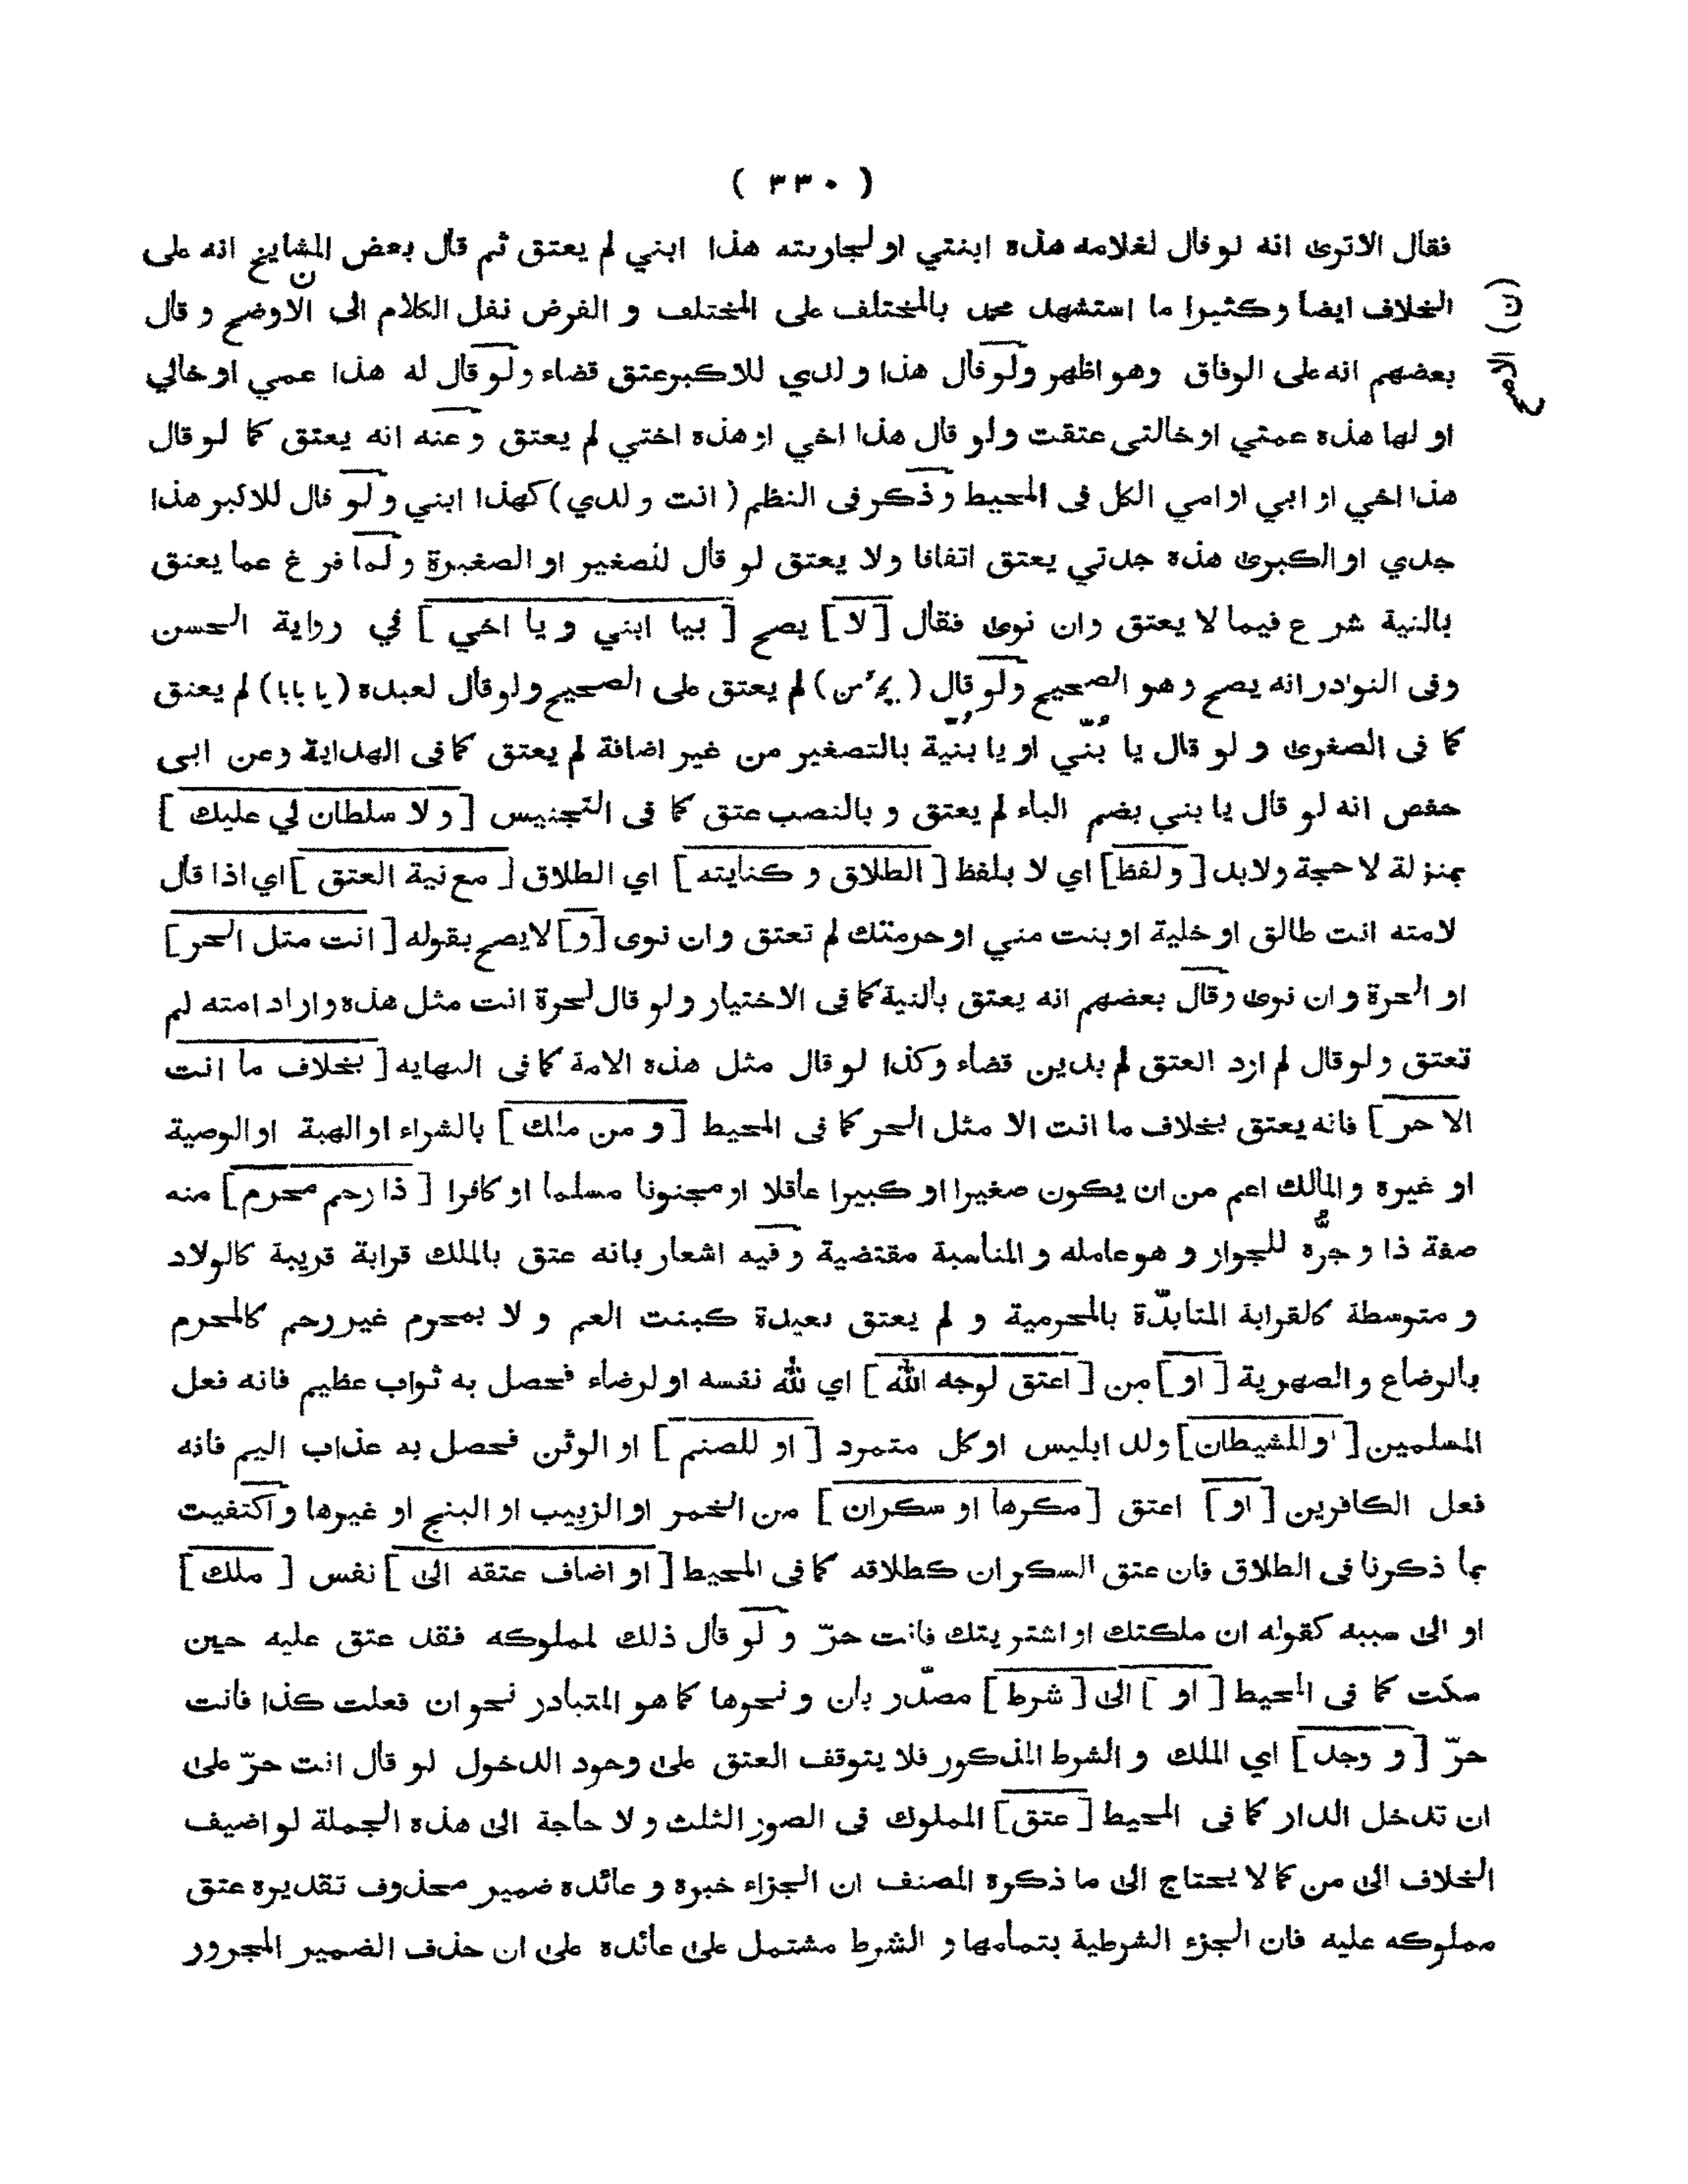 ( ٣٣٠ )
فقال الاترى انه لو قال لغلامه هذه ابنتي او لجاريته هذا ابني لم يعتق ثم قال بعض المشايخ انه على
الخلاف ايضا وكثيرا ما استشهد محمد بالمختلف على المختلف و الفرض نقل الكلام الى الاوضح و قال
(ن)
بعضهم انه على الوفاق وهو اظهر ولو قال هذا ولدي للاكبر عتق قضاء ولو قال له هذا عمي او خالي
او لها هذه عمتي او خالتى عتقت ولو قال هذا اخي او هذه اختي لم يعتق وعنه انه يعتق كما لو قال
هذا اخي او ابي او امي الكل فى المحيط وذكر فى النظم ( انت ولدي ) كهذا ابني ولو قال للاكبر هذا
جدي او الكبرى هذه جدتي يعتق اتفاقا ولا يعتق لو قال للصغير او الصغيرة ولما فرغ عما يعتق
بالنية شرع فيما لا يعتق وان نوى فقال [ لا ] يصح [ بيا ابني و يا اخي ] في رواية الحسن
وفى النوادر انه يصح وهو الصحيح ولو قال لم يعتق على الصحيح ولو قال لعبده ( يا بابا ) لم يعتق
كما فى الصغرى و لو قال يا بُنّي او يا بُنّية بالتصغير من غير اضافة لم يعتق كما فى الهداية وعن ابى
حفص انه لو قال يا بني بضم الباء لم يعتق و بالنصب عتق كما فى التجنيس [ و لا سلطان لي عليك ]
بمنزلة لا حجة ولابد [ ولفظ ] اي لا بلفظ [ الطلاق و كنايته ] اي الطلاق [ مع نية العتق ] اي اذا قال
لامته انت طالق او خلية او بنت مني او حرمتك لم تعتق وان نوى [ و ] لا يصح بقوله [ انت مثل الحر ]
او الحرة وان نوى وقال بعضهم انه يعتق بالنية كما فى الاختيار ولو قال لحرة انت مثل هذه واراد امته لم
تعتق ولو قال لم ارد العتق لم يدين قضاء وكذا لو قال مثل هذه الامة كما فى النهايه [ بخلاف ما انت
الا حر ] فانه يعتق بخلاف ما انت الا مثل الحر كما فى المحيط [ و من ملك ] بالشراء او الهبة او الوصية
او غيره والمالك اعم من ان يكون صغيرا او كبيرا عاقلا او مجنونا مسلما او كافرا [ ذا رحم محرم ] منه
صفة ذا و جرُّه للجوار و هو عامله و المناسبة مقتضية و فيه اشعار بانه عتق بالملك قرابة قريبة كالولاد
و متوسطة كالقرابة المتابدّة بالمحرمية و لم يعتق بعيدة كبنت العم و لا بمحرم غير رحم كالمحرم
بالرضاع والصهرية [ او ] من [ اعتق لوجه الله ] اي لله نفسه او لرضاء فحصل به ثواب عظيم فانه فعل
المسلمين [ او للشيطان ] ولد ابليس او كل متمرد [ او للصنم ] او الوثن فحصل به عذاب اليم فانه
فعل الكافرين [ او ] اعتق [ مكرها او سكران ] من الخمر او الزبيب او البنج او غيرها واكتفيت
بما ذكرنا فى الطلاق فان عتق السكران كطلاقه كما فى المحيط [ او اضاف عتقه الى ] نفس [ ملك ]
او الى سببه كقوله ان ملكتك او اشتريتك فانت حرّ و لو قال ذلك لمملوكه فقد عتق عليه حين
سكت كما فى المحيط [ او ] الى [ شرط ] مصدّر بان و نحوها كما هو المتبادر نحو ان فعلت كذا فانت
حرّ [ و وجد ] اي الملك و الشرط المذكور فلا يتوقف العتق على وجود الدخول لو قال انت حرّ على
ان تدخل الدار كما فى المحيط [ عتق ] المملوك فى الصور الثلث و لا حاجة الى هذه الجملة لو اضيف
الخلاف الى من كما لا يحتاج الى ما ذكره المصنف ان الجزاء خبره و عائده ضمير محذوف تقديره عتق
مملوكه عليه فان الجزء الشرطية بتمامها و الشرط مشتمل على عائده على ان حذف الضمير المجرور